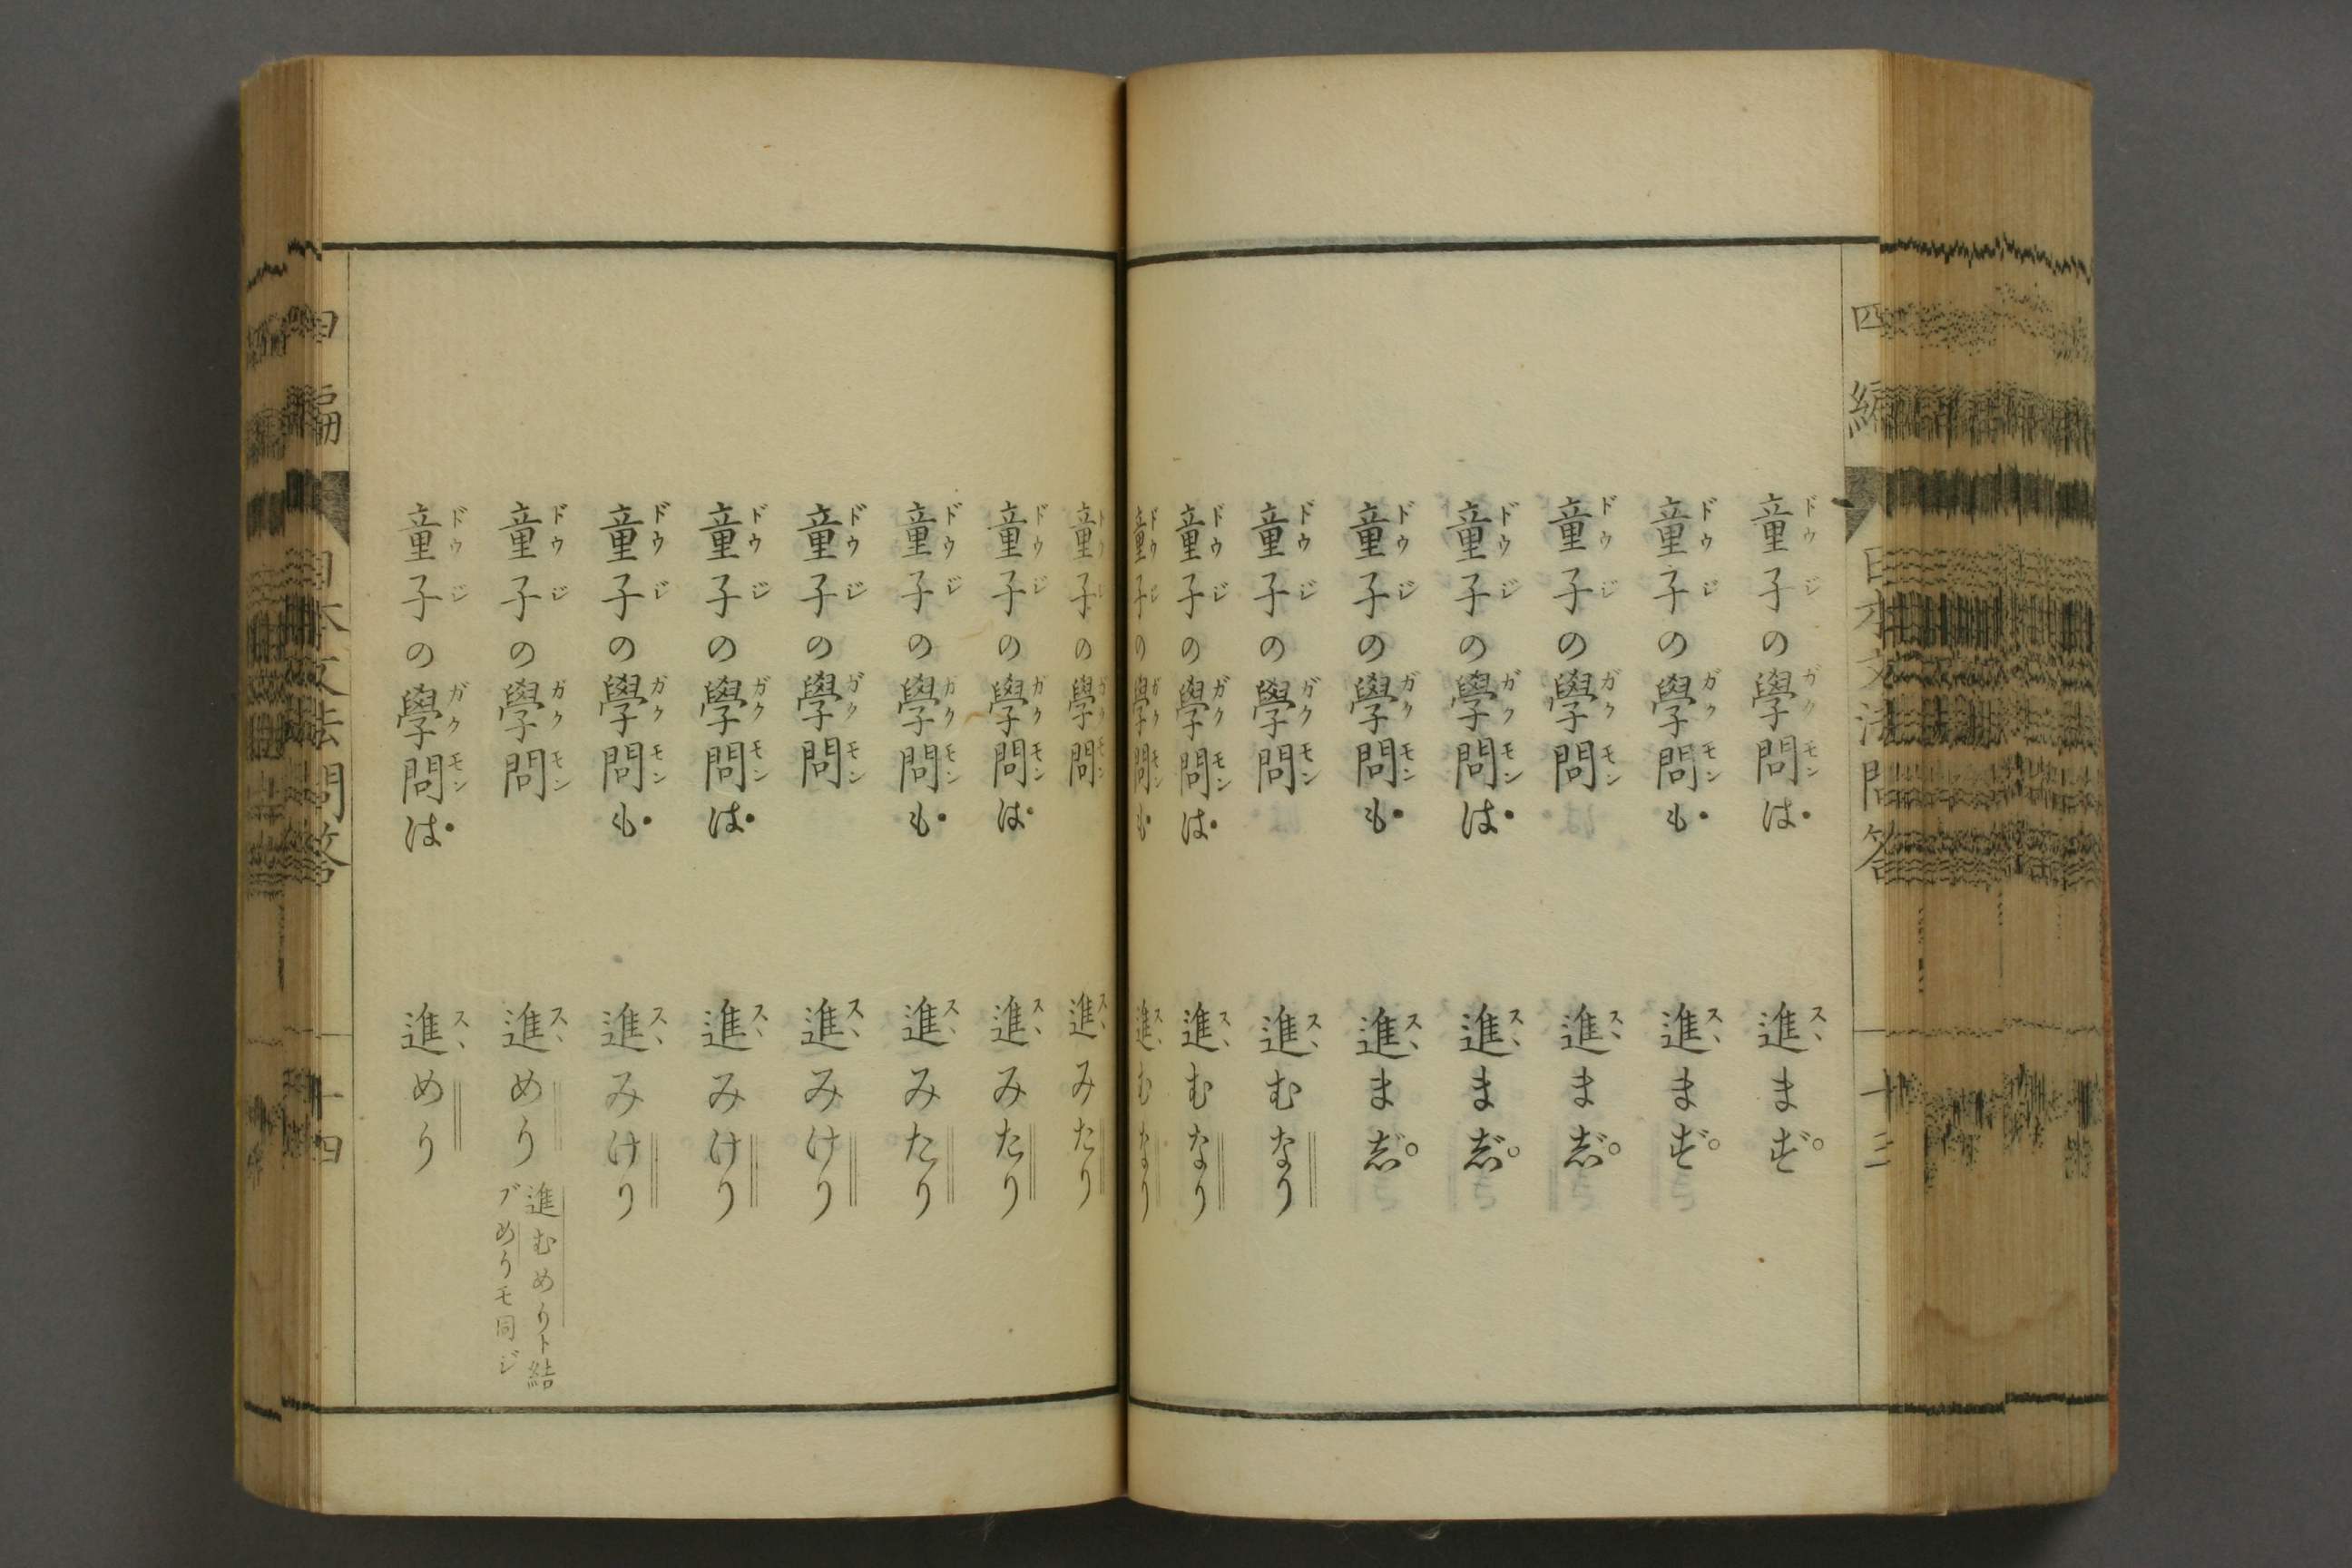 四編 日本文法問答 十三
童子の學問は 進まず
童子の學問も 進まず
童子の學問 進まじ
童子の學問は 進まじ
童子の學問も 進まじ
童子の學問 進むなり
童子の學問は 進むなり
童子の學問も 進むなり
童子の學問 進みたり
童子の學問は 進みたり
童子の學問も 進みたり
童子の學問 進みけり
童子の學問は 進みけり
童子の學問も 進みけり
童子の學問 進めり 進むめりト結
ブめりモ同ジ
童子の學問は 進めり
四編 日本文法問答 十四